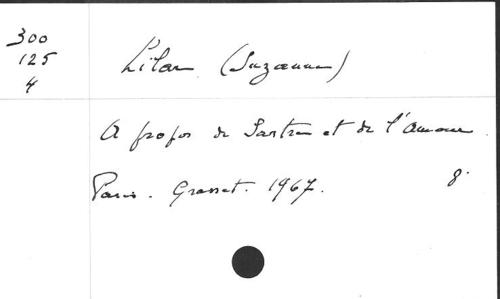 300
125
4
Lilar (Suzanne)
A propos de Sartre et de l'amour
Paris. Grasset. 1967.
8°